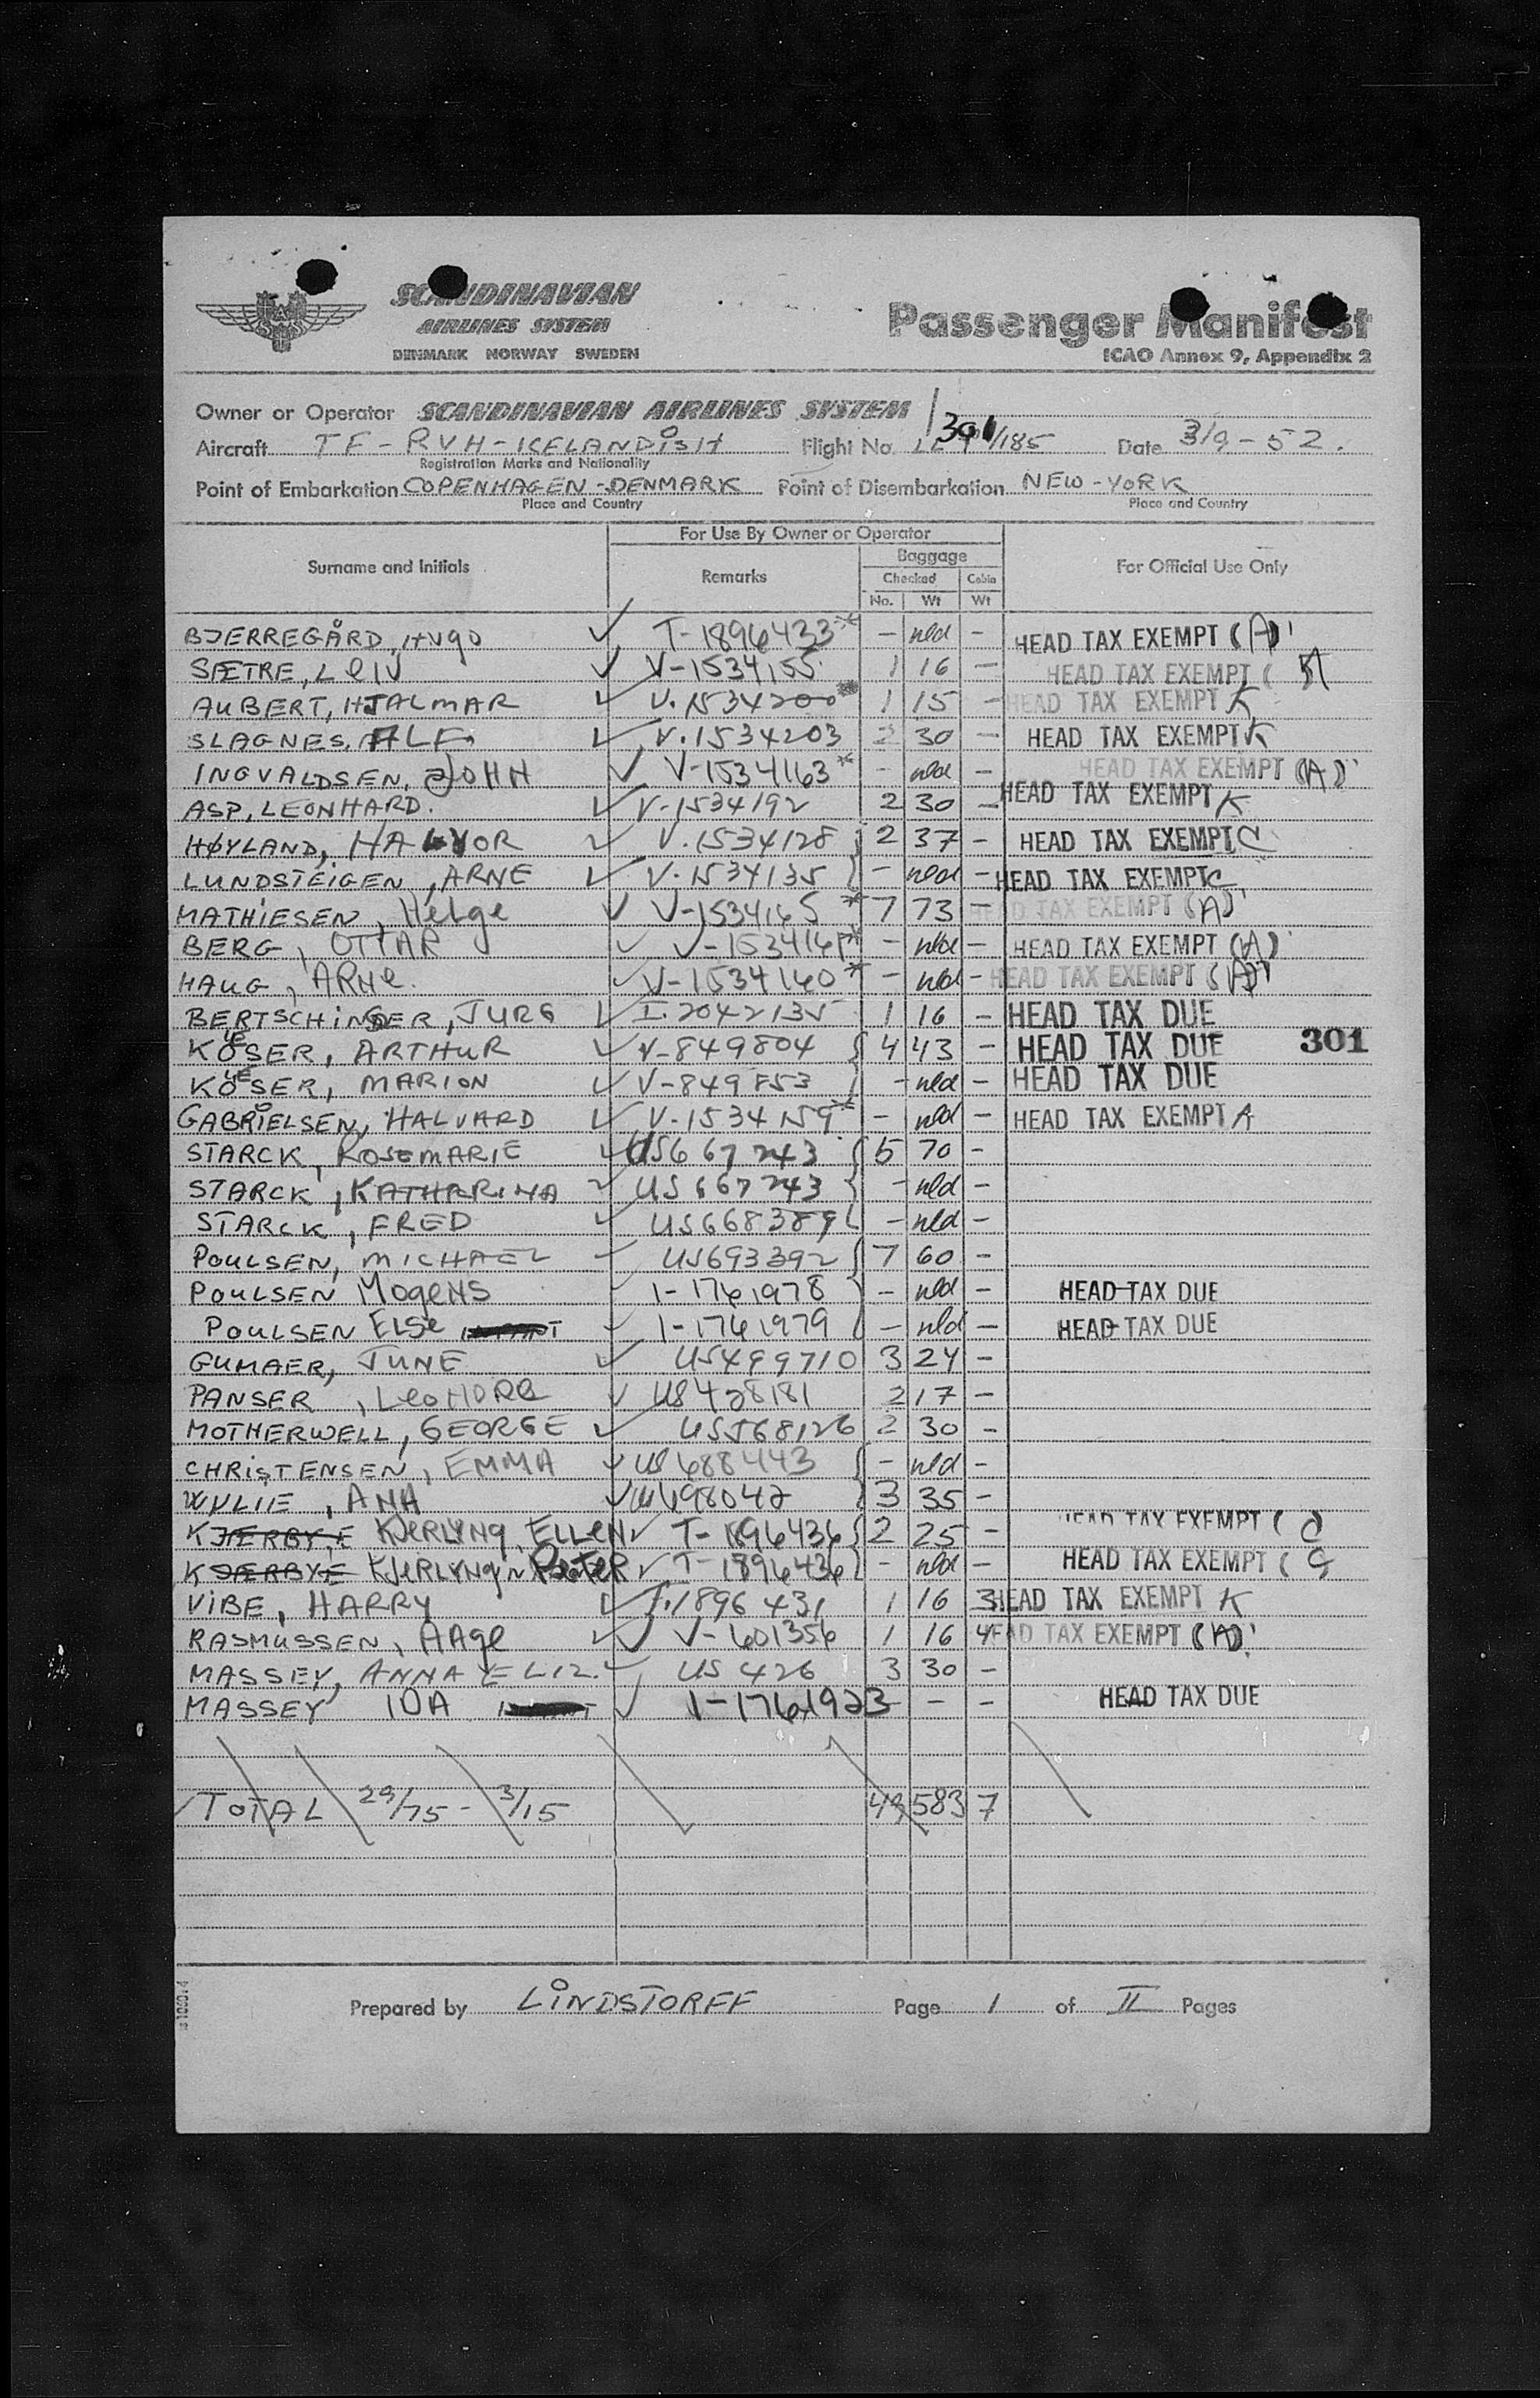 SCANDINAVIAN
AIRLINES SYSTEM
DENMARK NORWAY SWEDEN
Passenger Manifest
ICAO Annex 9, Appendix 2
Owner or Operator SCANDINAVIAN AIRLINES SYSTEM
Aircraft TF-RVH-ICELANDISH Flight No. LL 301/185 Date 3/9-52.
Registration Marks and Nationality
Point of Embarkation COPENHAGEN-DENMARK Point of Disembarkation NEW-YORK
Place and Country Place and Country
For Use By Owner or Operator
Surname and Initials Remarks Baggage For Official Use Only
Checked Cabin
No. Wt Wt
BJERREGÅRD, HUgO ✓ T-1896433* - nld - HEAD TAX EXEMPT (A)
SÆTRE, LeIV ✓ V-1534155 1 16 - HEAD TAX EXEMPT (
AUBERT, HJALMAR ✓ V.1534200* 1 15 - HEAD TAX EXEMPT K
SLAGNES, ALF ✓ V.1534203 2 30 - HEAD TAX EXEMPT K
INGVALDSEN, JOHN ✓ V-1534163* - nld - HEAD TAX EXEMPT (A)
ASP, LEONHARD. ✓ V-1534192 2 30 - HEAD TAX EXEMPT K
HØYLAND, HALVOR ✓ V.1534128 2 37 - HEAD TAX EXEMPT C
LUNDSTEIGEN, ARNE ✓ V.1534135 - nld - HEAD TAX EXEMPT C
MATHIESEN, HELge ✓ V-1534165 * 7 73 - HEAD TAX EXEMPT (A)
BERG, OTTAR ✓ - nld - HEAD TAX EXEMPT (A)
HAUG, ARNe. ✓ V-1534160* - nld - HEAD TAX EXEMPT (A)
BERTSCHINGER, JURG ✓ I.2042135 1 16 - HEAD TAX DUE
KOESER, ARTHUR ✓ V-849804 4 43 - HEAD TAX DUE 301
KOESER, MARION ✓ V-849853 - nld - HEAD TAX DUE
GABRIELSEN, HALVARD ✓ V.1534159* - nld - HEAD TAX EXEMPT A
STARCK, ROSEMARIE ✓ US667243 5 70 -
STARCK, KATHARINA ✓ US667243 - nld -
STARCK, FRED ✓ US668389 - nld -
POULSEN, MICHAEL US693392 7 60 -
POULSEN MOgeNS ✓ I-1761978 - nld - HEAD TAX DUE
POULSEN ELSe ✓ I-1761979 - nld - HEAD TAX DUE
GUMAER, JUNE ✓ US499710 3 24 -
PANSER, LeoNORe ✓ US428181 2 17 -
MOTHERWELL, GEORGE ✓ US568126 2 30 -
CHRISTENSEN, EMMA ✓ US688443 - nld -
WYLIE, ANA ✓ US698042 3 35 -
KJÆRBYE KJeRLYNg, ELLeN ✓ T-1896436 2 25 - HEAD TAX EXEMPT ( C
KJÆRBYE KJeRLYNg, PeTeR ✓ T-1896436 - nld - HEAD TAX EXEMPT ( C
VIBE, HARRY ✓ T.1896431 1 16 3 HEAD TAX EXEMPT K
RASMUSSEN, AAge ✓ V-601356 1 16 4 HEAD TAX EXEMPT (A)
MASSEY, ANNA ELIZ. ✓ US 426 3 30 -
MASSEY IDA ✓ I-1761923 - - - HEAD TAX DUE
TOTAL 29/75 - 3/15 49 583 7
Prepared by LINDSTORFF Page 1 of II Pages